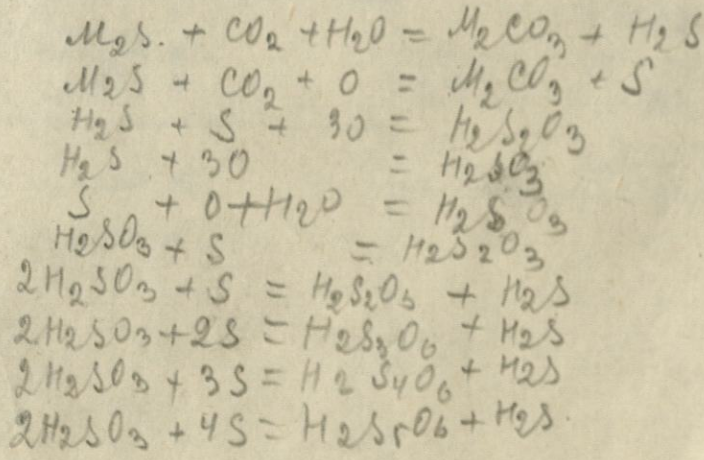 M₂S. + CO₂ + H₂O = M₂CO₃ + H₂S
M₂S + CO₂ + O = M₂CO₃ + S
H₂S + S + 3O = H₂S₂O₃
H₂S + 3O = H₂SO₃
S + O + H₂O = H₂SO₃
H₂SO₃ + S = H₂S₂O₃
2H₂SO₃ + S = H₂S₂O₅ + H₂S
2H₂SO₃ + 2S = H₂S₃O₆ + H₂S
2H₂SO₃ + 3S = H₂S₄O₆ + H₂S
2H₂SO₃ + 4S = H₂S₅O₆ + H₂S.